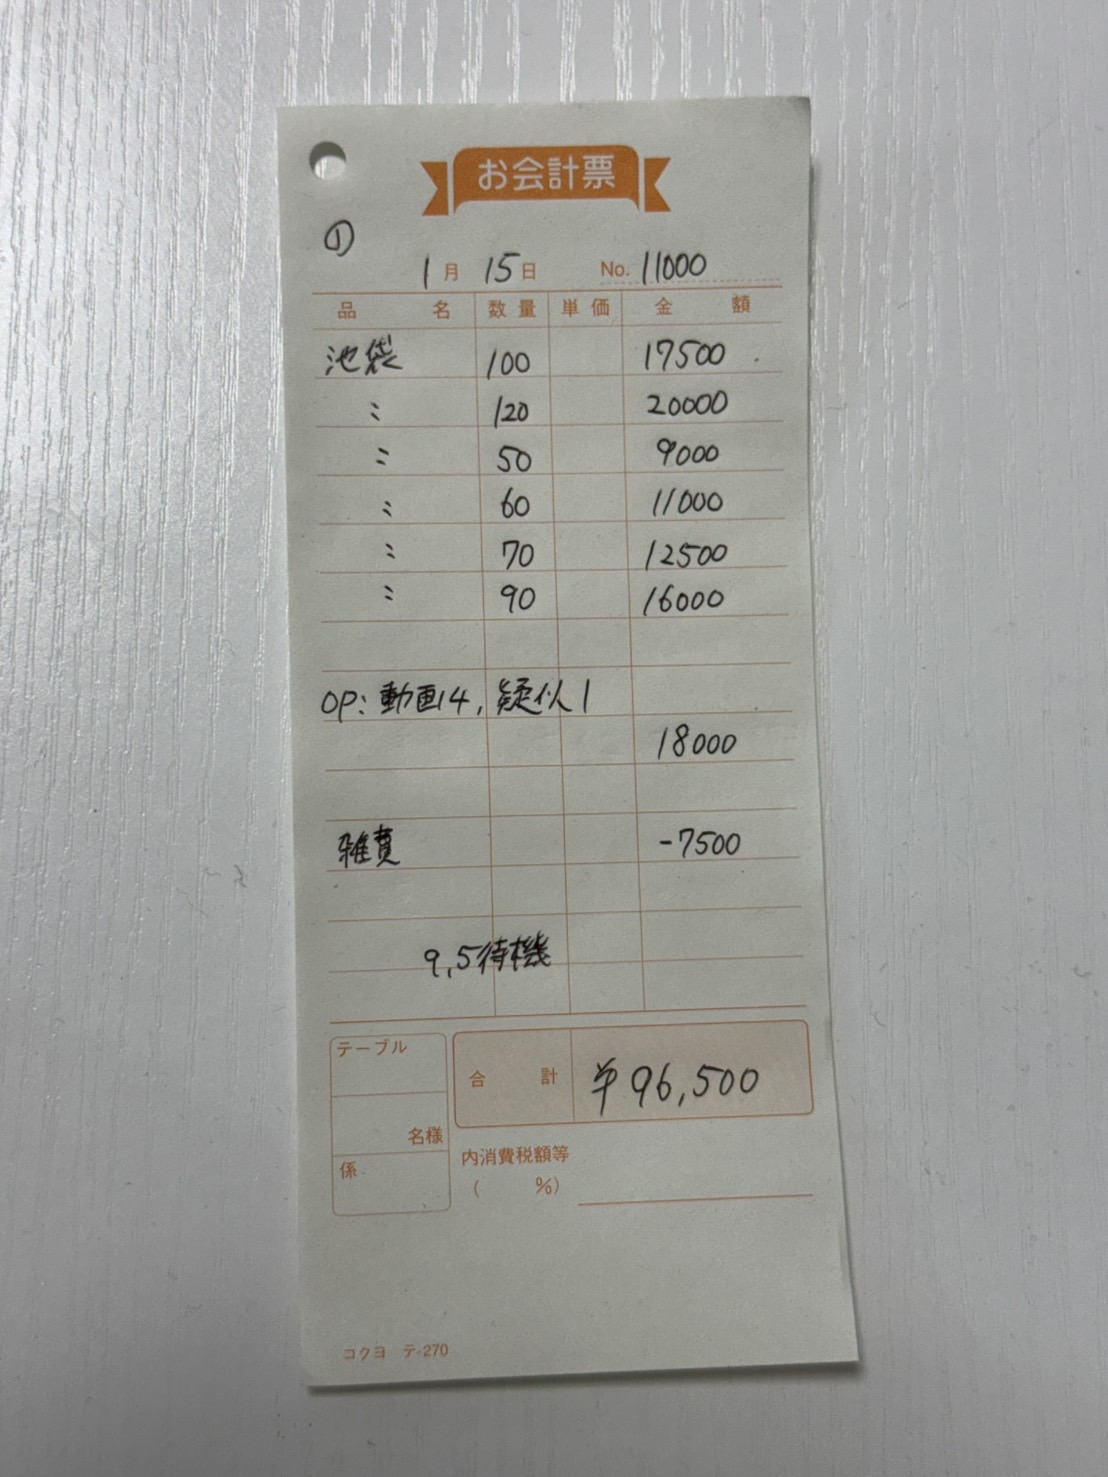 お会計票
①
1月 15日 No. 11000
品名 数量 単価 金額
池袋 100 17500
〃 120 20000
〃 50 9000
〃 60 11000
〃 70 12500
〃 90 16000
OP: 動画14, 疑似1
18000
雑費 -7500
9,5待機
テーブル
合計 ¥96,500
名様
係
内消費税額等
( %)
コクヨ テ-270